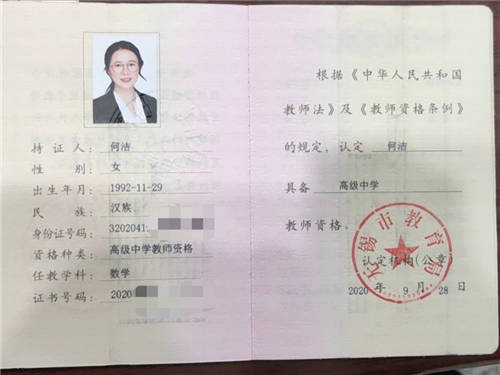 持证人： 何洁
性别： 女
出生年月： 1992-11-29
民族： 汉族
身份证号码： 3202041
资格种类： 高级中学教师资格
任教学科： 数学
证书号码： 2020
根据《中华人民共和国
教师法》及《教师资格条例》
的规定，认定 何洁
具备 高级中学
教师资格。
无锡市教育局
认定机构(公章)
2020 年 9 月 28 日